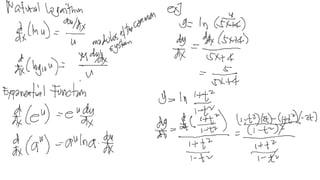 Natural Logarithm
d/dx (ln u) = du/dx / u
modulus of the common system
d/dx (log₁₀ u) = M du/dx / u
Exponential Function
d/dx (e^u) = e^u du/dx
d/dx (a^u) = a^u ln a · du/dx
ex]
y = ln (5x+4)
u
dy/dx = d/dx (5x+4) / 5x+4
= 5 / 5x+4
y = ln 1+t² / 1-t²
dy/dx = d/dt (1+t² / 1-t²) / (1+t² / 1-t²) = ((1-t²)(2t) - (1+t²)(-2t) / (1-t²)²) / (1+t² / 1-t²)